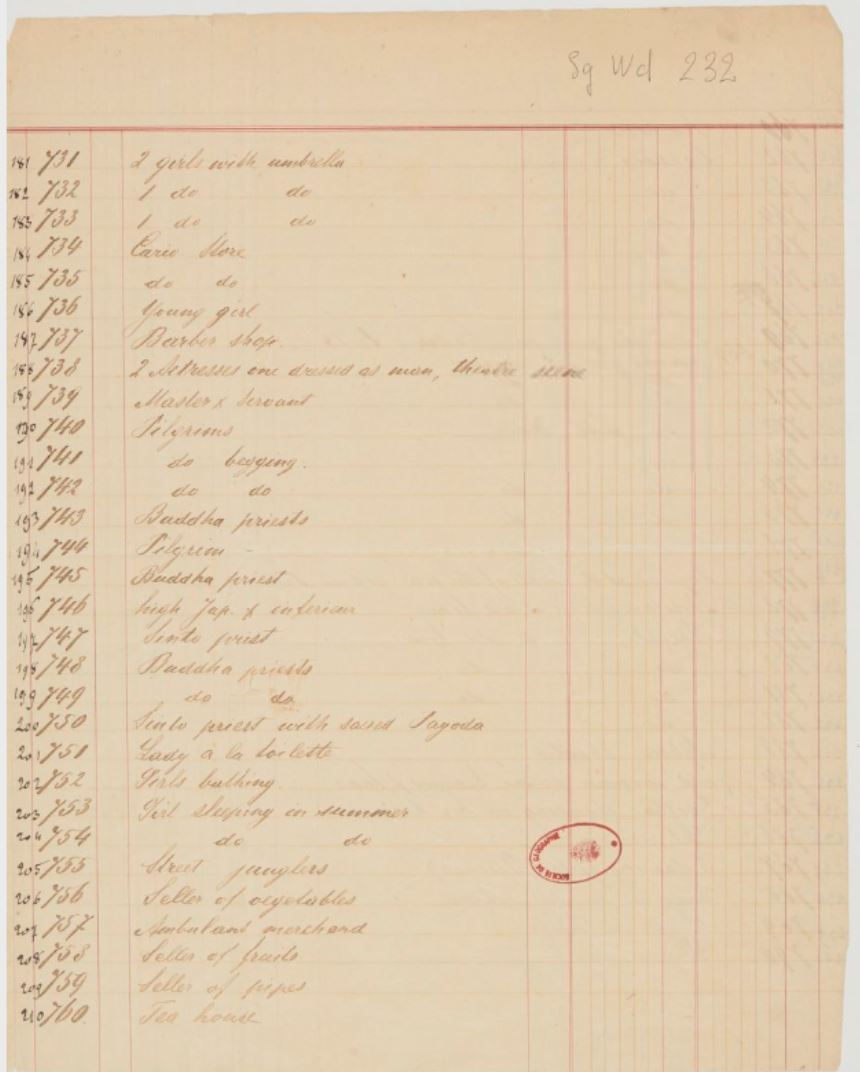 Sg Wd 232
181 731 2 girls with umbrella
182 732 1 do do
183 733 1 do do
184 734 Curio Store
185 735 do do
186 736 Young girl
187 737 Barber shop.
188 738 2 Actresses one dressed as man, theatre scene
189 739 Master & Servant
190 740 Pilgrims
191 741 do begging.
192 742 do do
193 743 Buddha priests
194 744 Pilgrim -
195 745 Buddha priest
196 746 high Jap. & inferiour
197 747 Sinto priest
198 748 Buddha priests
199 749 do do
200 750 Sinto priest with sacred Pagoda
201 751 Lady à la toilette
202 752 Girls bathing.
203 753 Girl sleeping in summer
204 754 do do
205 755 Street junglers
206 756 Seller of vegetables
207 757 Ambulant merchand
208 758 Seller of fruits
209 759 Seller of pipes
210 760 Tea house
SOCIÉTÉ DE GÉOGRAPHIE